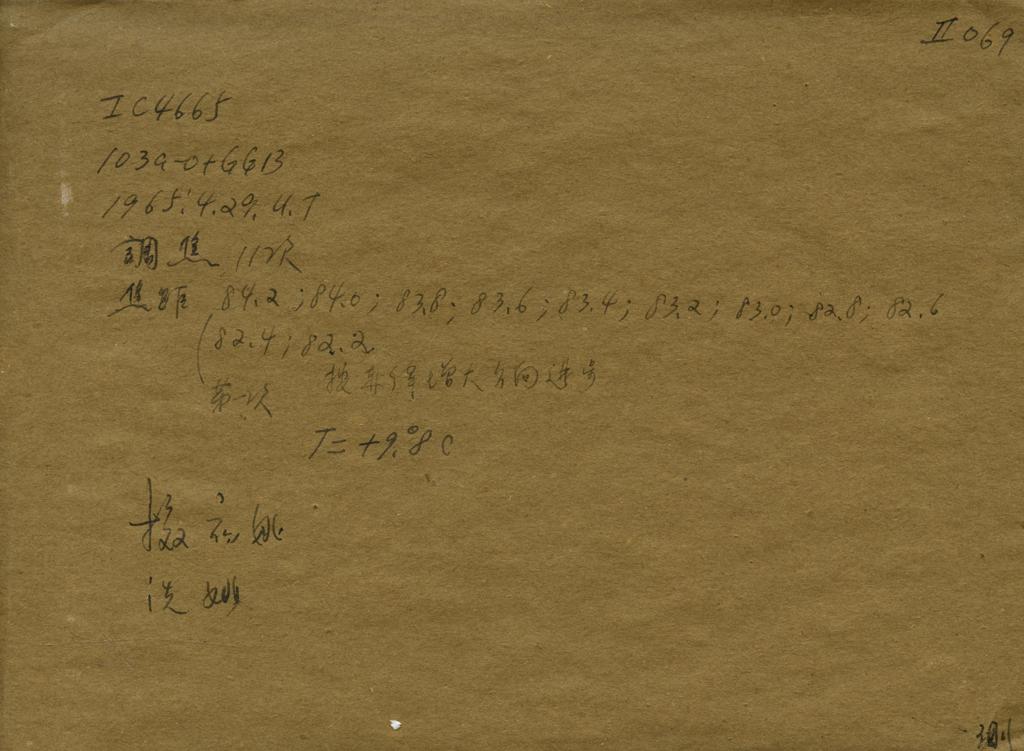 II 069
IC4665
103a-O+GG13
1965.4.29. U.T
調焦 11次
焦距 84.2; 84.0; 83.8; 83.6; 83.4; 83.2; 83.0; 82.8; 82.6
82.4; 82.2
第一次 按赤 增大方向
T=+9.°8 C
摄 姚
洗 姚